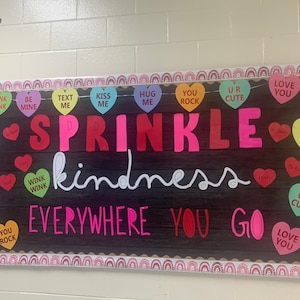 BE MINE
TEXT ME
KISS ME
HUG ME
YOU ROCK
U R CUTE
LOVE YOU
SPRINKLE
kindness
WINK WINK
EVERYWHERE YOU GO
YOU ROCK
LOVE YOU